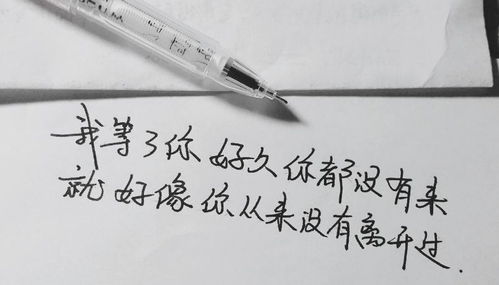 我等了你好久你都没有来
就好像你从来没有离开过.